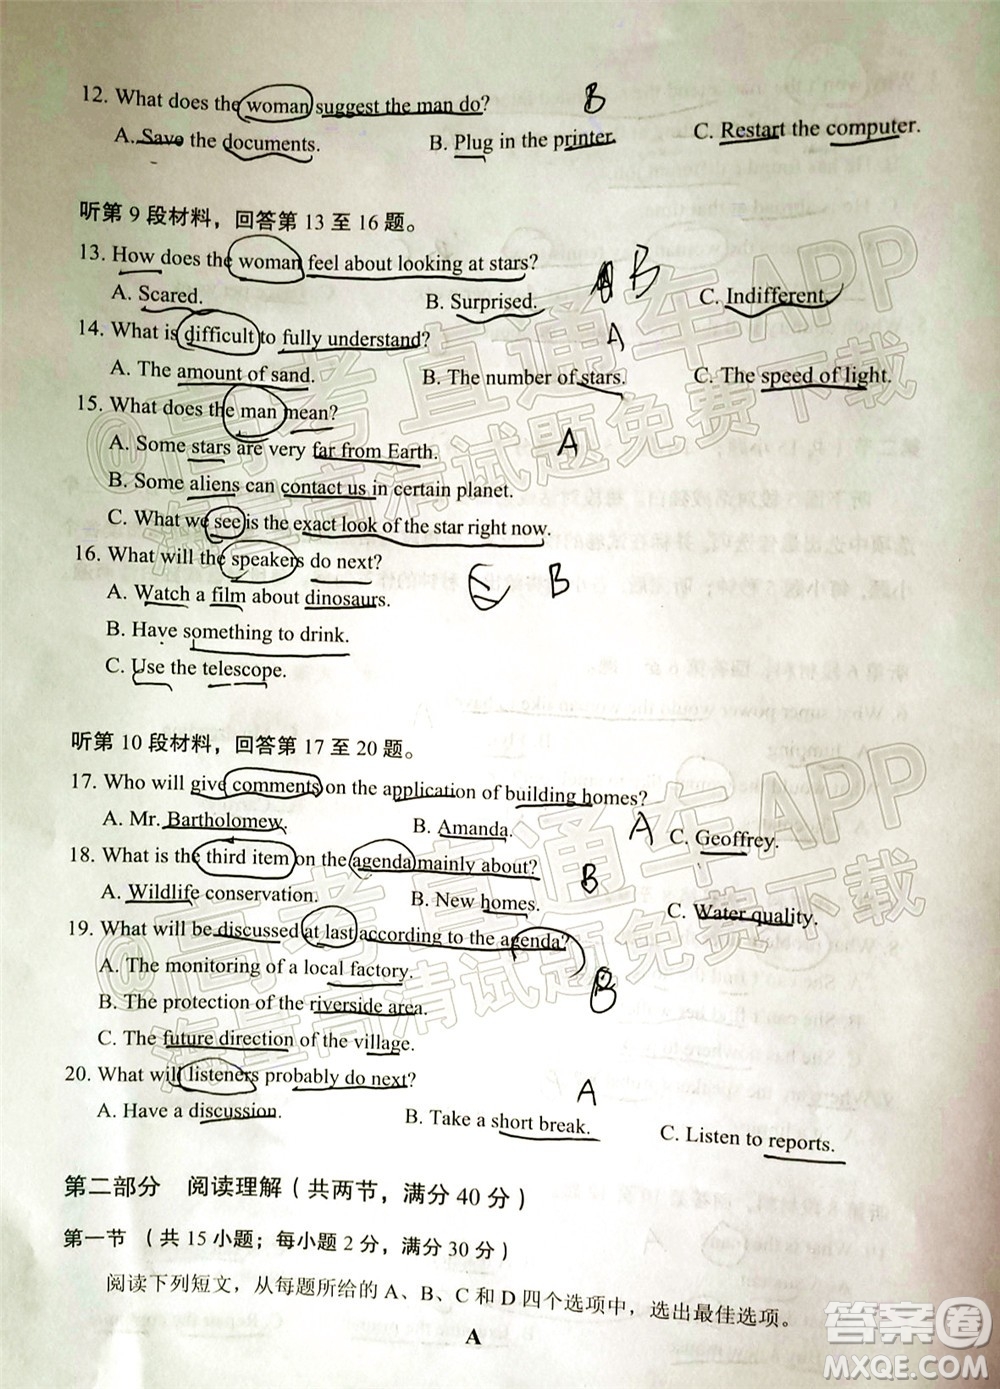 12. What does the woman suggest the man do? B
A. Save the documents. B. Plug in the printer. C. Restart the computer.
听第 9 段材料，回答第 13 至 16 题。
13. How does the woman feel about looking at stars? B
A. Scared. B. Surprised. C. Indifferent.
14. What is difficult to fully understand? A
A. The amount of sand. B. The number of stars. C. The speed of light.
15. What does the man mean?
A. Some stars are very far from Earth. A
B. Some aliens can contact us in certain planet.
C. What we see is the exact look of the star right now.
16. What will the speakers do next? B
A. Watch a film about dinosaurs.
B. Have something to drink.
C. Use the telescope.
听第 10 段材料，回答第 17 至 20 题。
17. Who will give comments on the application of building homes?
A. Mr. Bartholomew. B. Amanda. A C. Geoffrey.
18. What is the third item on the agenda mainly about? B
A. Wildlife conservation. B. New homes. C. Water quality.
19. What will be discussed at last according to the agenda?
A. The monitoring of a local factory. B
B. The protection of the riverside area.
C. The future direction of the village.
20. What will listeners probably do next? A
A. Have a discussion. B. Take a short break. C. Listen to reports.
第二部分 阅读理解（共两节，满分 40 分）
第一节 （共 15 小题；每小题 2 分，满分 30 分）
阅读下列短文，从每题所给的 A、B、C 和 D 四个选项中，选出最佳选项。
A
@高考直通车APP
海量高清试题免费下载
@高考直通车APP
海量高清试题免费下载
答案圈
MXQE.COM